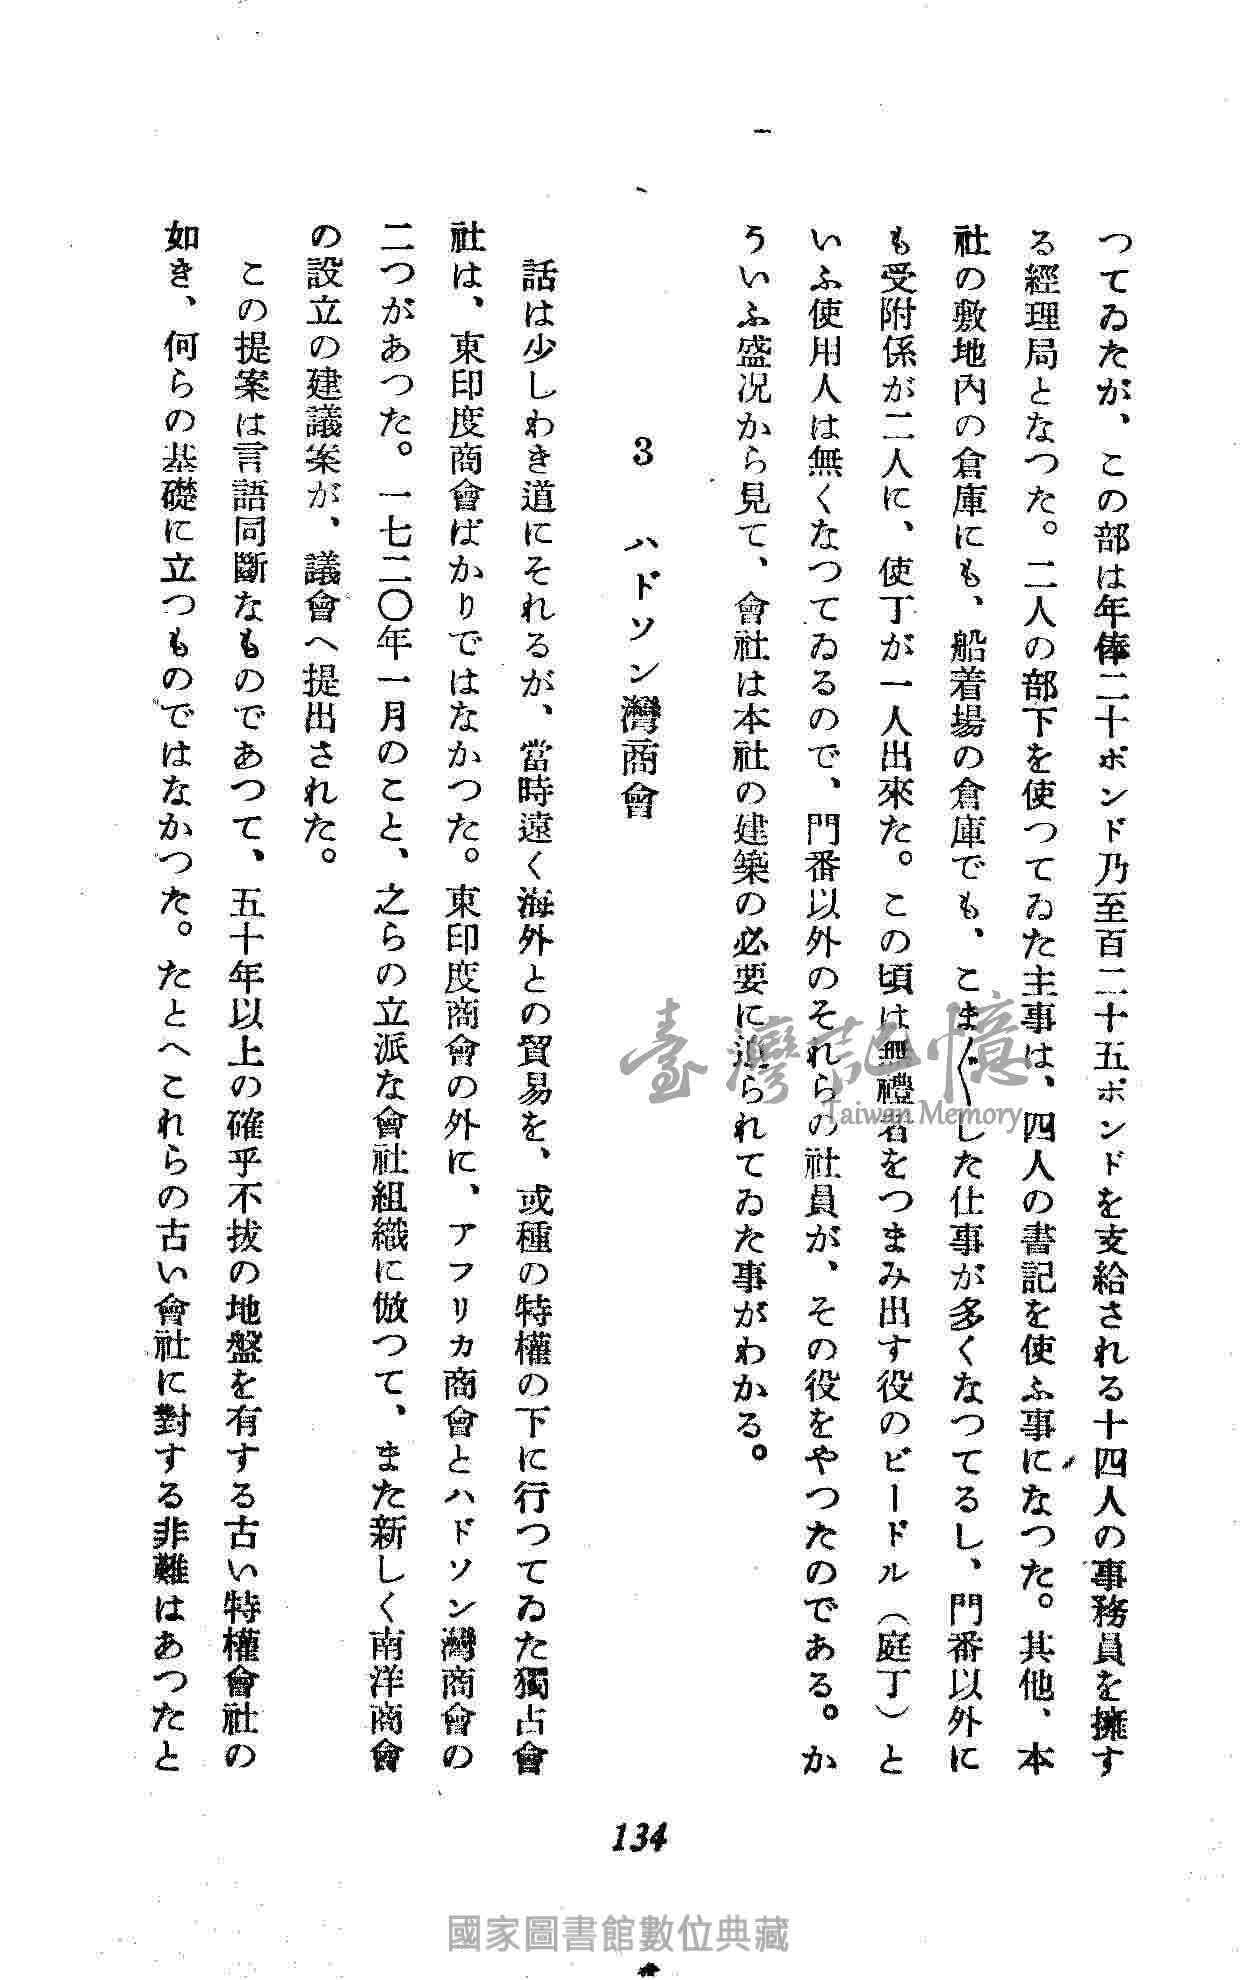 つてゐたが、この部は年俸二十ポンド乃至百二十五ポンドを支給される十四人の事務員を擁す
る經理局となつた。二人の部下を使つてゐた主事は、四人の書記を使ふ事になつた。其他、本
社の敷地內の倉庫にも、船着場の倉庫でも、こま〲した仕事が多くなつてるし、門番以外に
も受附係が二人に、使丁が一人出來た。この頃は無禮者をつまみ出す役のビードル（庭丁）と
いふ使用人は無くなつてゐるので、門番以外のそれらの社員が、その役をやつたのである。か
ういふ盛况から見て、會社は本社の建築の必要に迫られてゐた事がわかる。
3 ハドソン灣商會
話は少しわき道にそれるが、當時遠く海外との貿易を、或種の特權の下に行つてゐた獨占會
社は、東印度商會ばかりではなかつた。東印度商會の外に、アフリカ商會とハドソン灣商會の
二つがあつた。一七二〇年一月のこと、之らの立派な會社組織に倣つて、また新しく南洋商會
の設立の建議案が、議會へ提出された。
この提案は言語同斷なものであつて、五十年以上の確乎不拔の地盤を有する古い特權會社の
如き、何らの基礎に立つものではなかつた。たとへこれらの古い會社に對する非難はあつたと
134
臺灣記憶
Taiwan Memory
國家圖書館數位典藏